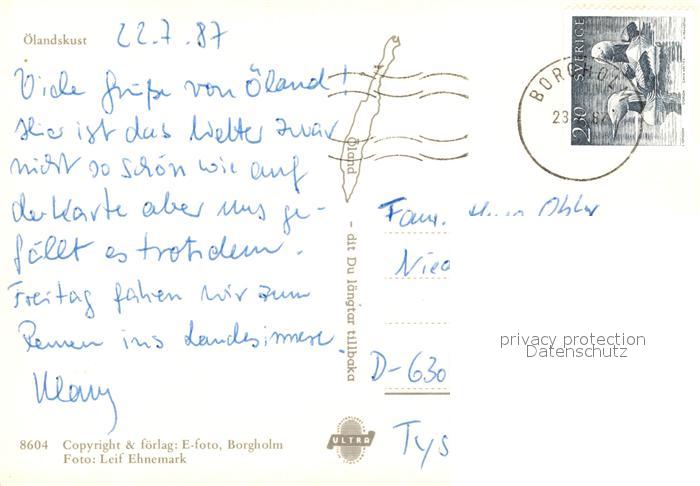 Ölandskust
22.7.87
Viele Grüße von Öland!
Hier ist das Wetter zwar
nicht so schön wie auf
der Karte aber uns ge-
fällt es trotzdem.
Freitag fahren wir zum
Rennen ins Landesinnere.
8604 Copyright & förlag: E-foto, Borgholm
Foto: Leif Ehnemark
Öland
- dit Du längtar tillbaka
ULTRA
BORGHOLM
23
87
SVERIGE
2.30
Fam.
D-630
Tys
privacy protection
Datenschutz